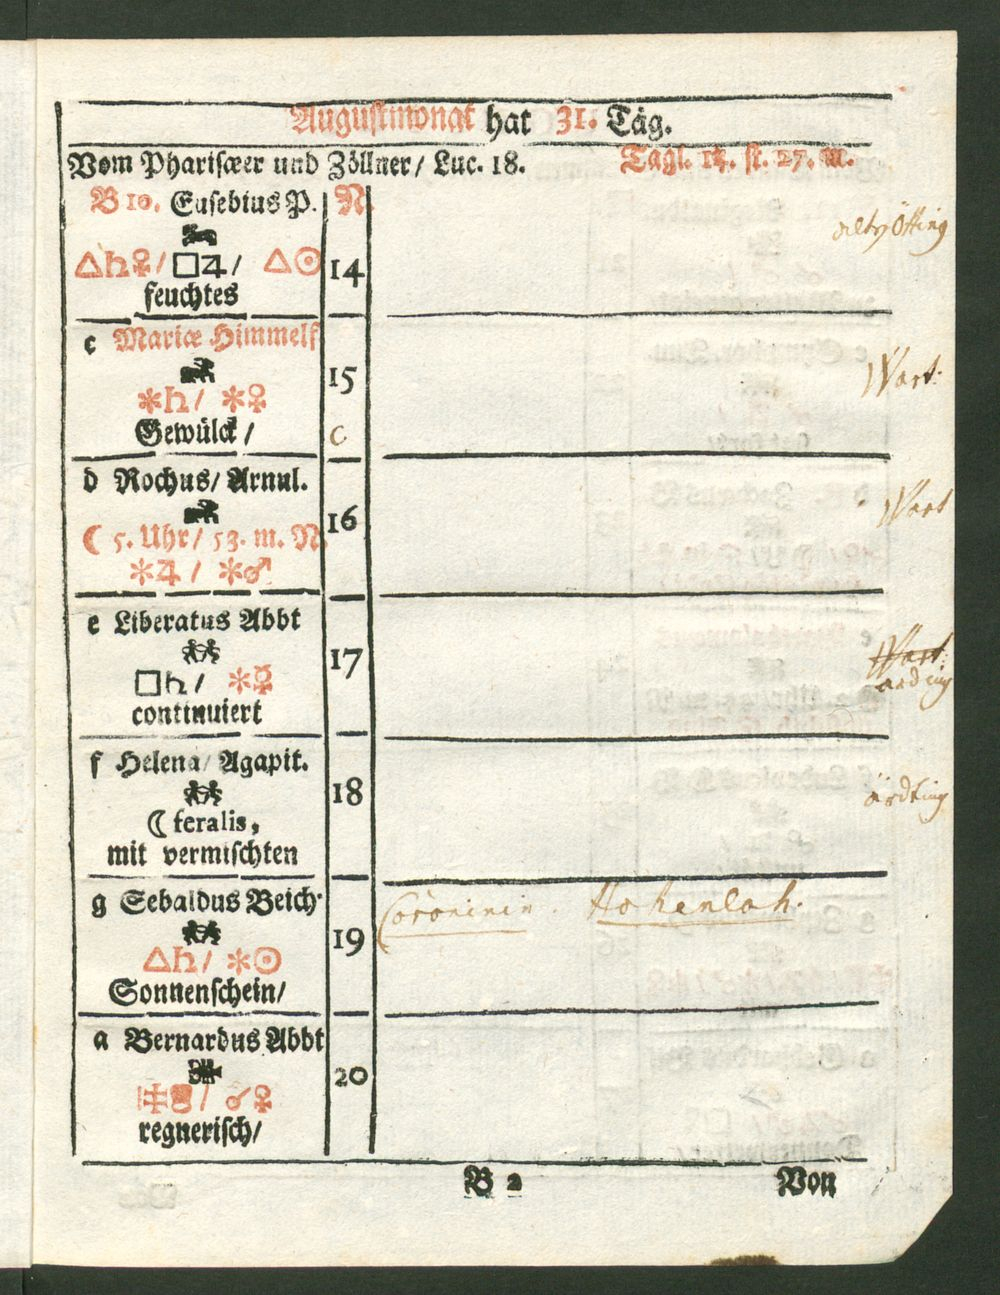 Augustmonat hat 31. Täg.
Vom Phariſæer und Zöllner/ Luc. 18. Tagl. 14. ſt. 27. m.
B 10. Euſebius P. N.
△♄♀/ □♃/ △☉ 14
feuchtes
c Mariæ Himmelf
15
✶♄/ ✶♀
Gewülck/ C
d Rochus/ Arnul.
16
☾ 5. Uhr/ 53. m. N.
✶♃/ ✶♂
e Liberatus Abbt
17
□♄/ ✶☿
continuiert
f Helena/ Agapit.
18
☾feralis,
mit vermiſchten
g Sebaldus Beich.
19
△♄/ ✶☉
Sonnenſchein/
a Bernardus Abbt
20
/ ☌♀
regneriſch/
B 2 Von
Ötting
Wart.
Wart
Wart.
arding
ärdting
Coroninin. Hohenloh.